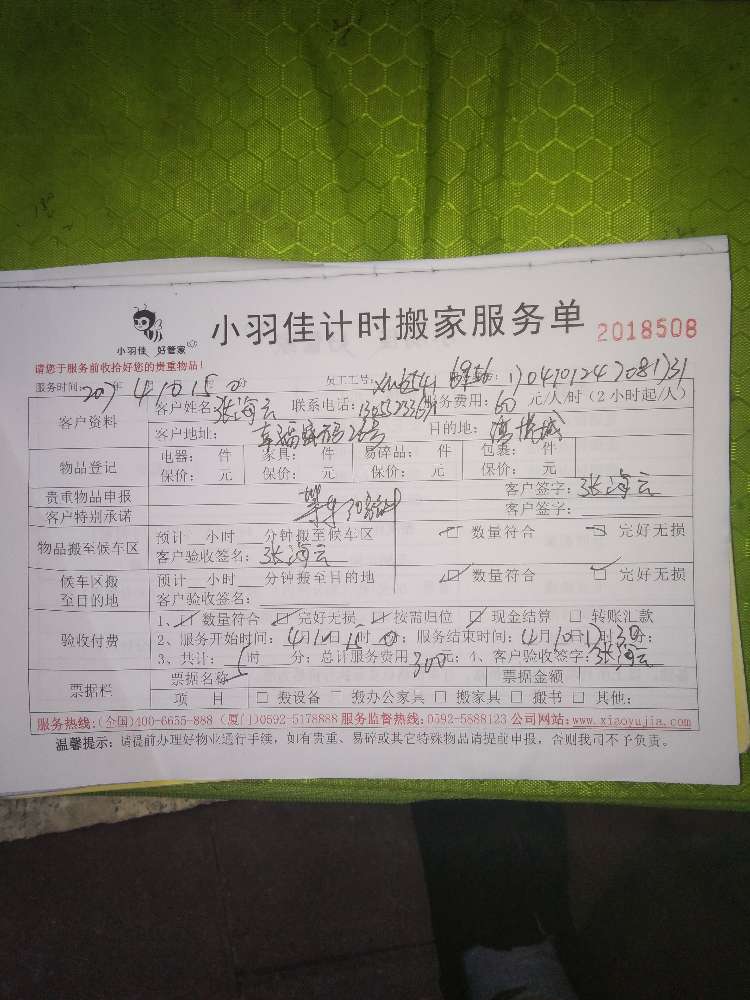 小羽佳 好管家
小羽佳计时搬家服务单 2018508
请您于服务前收拾好您的贵重物品!
服务时间: 年 4 10 15 分 员工工号:
客户资料 客户姓名: 张海云 联系电话: 服务费用: 60 元/人/时(2小时起/人)
客户地址: 目的地:
物品登记 电器: 件 家具: 件 易碎品: 件 包裹: 件
保价: 元 保价: 元 保价: 元 保价: 元
贵重物品申报 客户签字: 张海云
客户特别承诺 客户签字:
物品搬至候车区 预计 小时 分钟搬至候车区 数量符合 完好无损
客户验收签名: 张海云
候车区搬至目的地 预计 小时 分钟搬至目的地 数量符合 完好无损
客户验收签名:
验收付费 1、 数量符合 完好无损 按需归位 现金结算 转账汇款
2、服务开始时间: 4月10日15时 0分; 服务结束时间: 4月10日 时30分;
3、共计: 5时 分; 总计服务费用 300元; 4、客户验收签字: 张海云
票据栏 票据名称 票据金额
项 目 搬设备 搬办公家具 搬家具 搬书 其他:
服务热线:(全国)400-6655-888 (厦门)0592-5178888 服务监督热线:0592-5888123 公司网站:www.xiaoyujia.com
温馨提示: 请提前办理好物业通行手续,如有贵重、易碎或其它特殊物品请提前申报,否则我司不予负责。